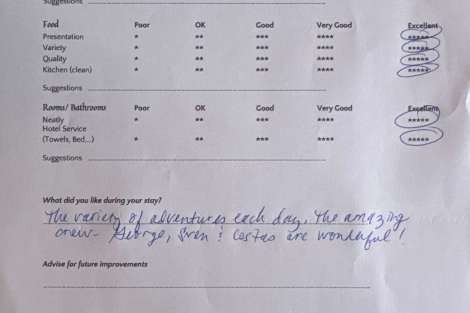 Suggestions
Food Poor OK Good Very Good Excellent
Presentation * ** *** **** *****
Variety * ** *** **** *****
Quality * ** *** **** *****
Kitchen (clean) * ** *** **** *****
Suggestions
Rooms/ Bathrooms Poor OK Good Very Good Excellent
Neatly * ** *** **** *****
Hotel Service
(Towels, Bed,..) * ** *** **** *****
Suggestions
What did you like during your stay?
The variety of adventures each day, the amazing
crew- George, Sven & Costas are wonderful!
Advise for future improvements